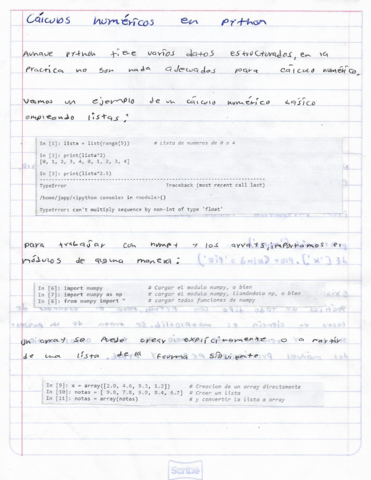 Cálculos numéricos en python
Aunque python tiene varios datos estructurados, en la
practica no son nada adecuados para cálculo numérico.
Veamos un ejemplo de un cálculo numérico básico
empleando listas:
In [1]: lista = list(range(5)) # Lista de numeros de 0 a 4
In [2]: print(lista*2)
[0, 1, 2, 3, 4, 0, 1, 2, 3, 4]
In [3]: print(lista*2.5)
TypeError Traceback (most recent call last)
/home/japp/<ipython console> in <module>()
TypeError: can't multiply sequence by non-int of type 'float'
para trabajar con numpy y los arrays, importamos el
módulos de alguna manera:
In [6]: import numpy # Cargar el modulo numpy, o bien
In [7]: import numpy as np # cargar el modulo numpy, llamándolo np, o bien
In [8]: from numpy import * # cargar todas funciones de numpy
un array se puede crear explícitamente o a partir
de una lista de la forma siguiente
In [9]: x = array([2.0, 4.6, 9.3, 1.2]) # Creacion de un array directamente
In [10]: notas = [ 9.8, 7.8, 9.9, 8.4, 6.7] # Crear un lista
In [11]: notas = array(notas) # y convertir la lista a array
Scribe